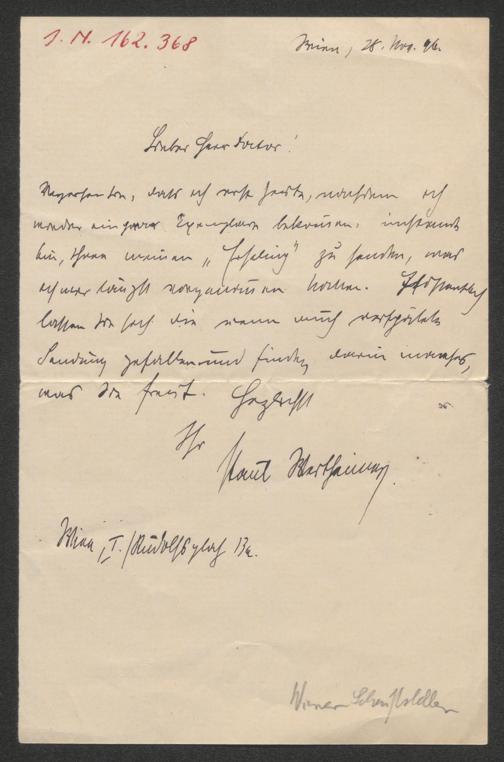 J. N. 162.368
Wien, 28. Nov. 96.
Lieber Herr Doctor!
Verzeihen Sie, dass ich erst heute, nachdem ich
wieder ein paar Exemplare bekommen, imstande
bin, Ihnen meinen „ " zu senden, was
ich mir längst vorgenommen hatte. Hoffentlich
lassen Sie sich die wenn auch verspätete
Sendung gefallen und finden darin manches,
was Sie freut. Herzlichst
Ihr
Paul Wertheimer.
Wien, I./Rudolfsplatz 13a.
Wiener Schriftsteller